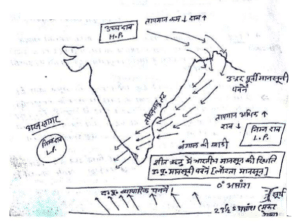 उच्च दाब
H.P.
तापमान कम ↓ दाब ↑
उत्तर पूर्वी मानसूनी
पवनें
तापमान अधिक ↑
दाब ↓
निम्न दाब
L.P.
अरब सागर
निम्न दाब
L.P.
बंगाल की खाड़ी
शीत ऋतु में भारतीय मानसून की स्थिति
उ.पू. मानसूनी पवनें [लौटता मानसून]
0° अक्षांश
द.पू. व्यापारिक पवनें
सूर्य
23½° अक्षांश (मकर